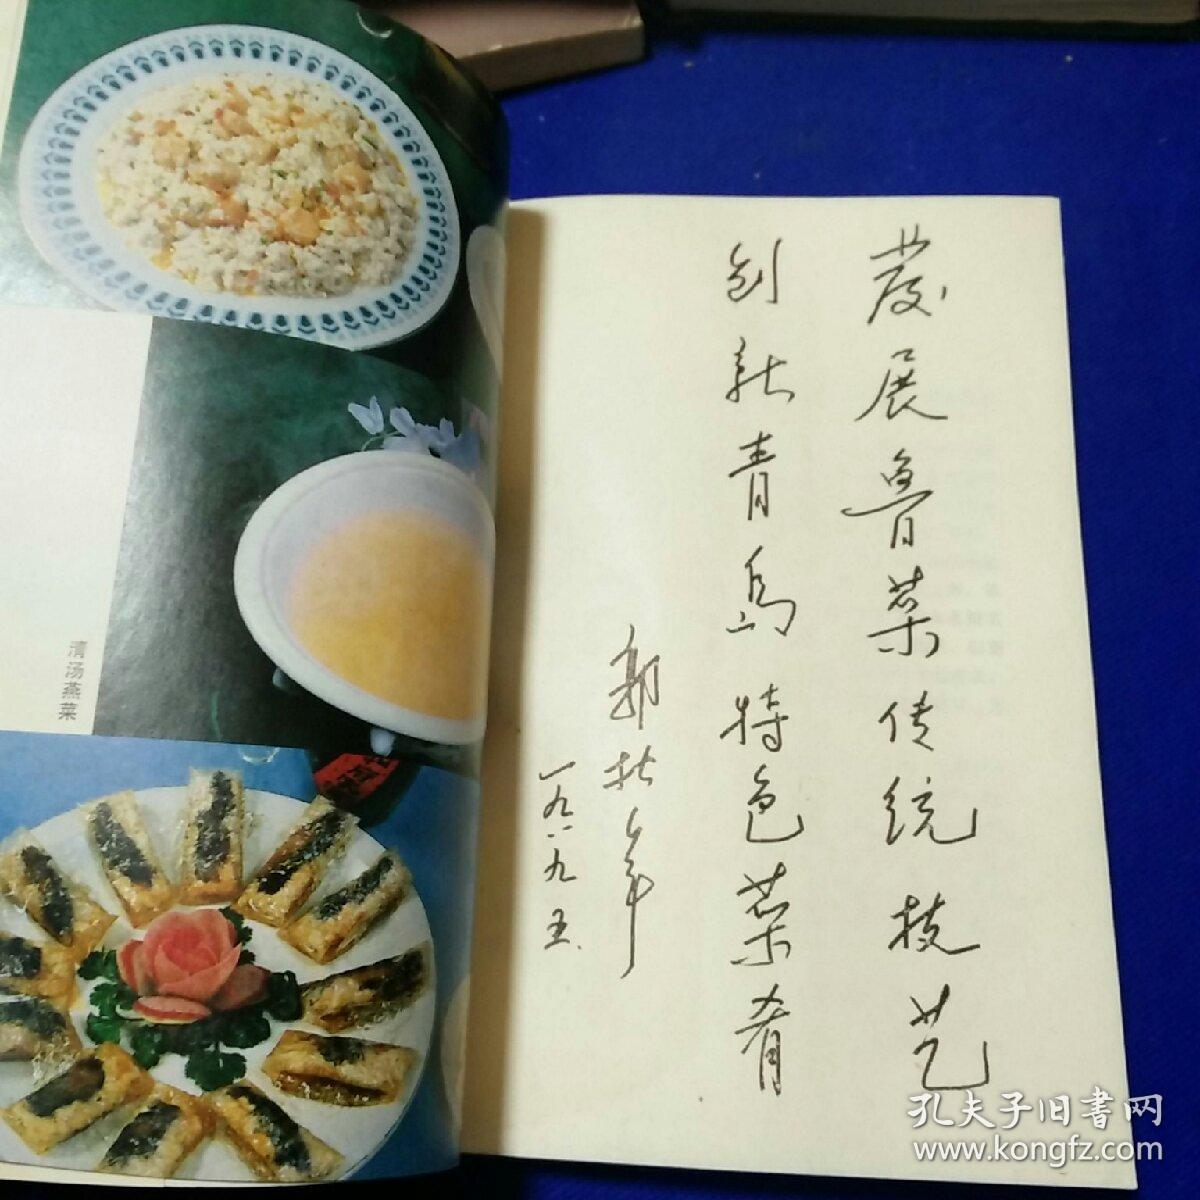 发展鲁菜传统技艺
创新青岛特色菜肴
郭松年
一九八九.五.
清汤燕菜
孔夫子旧書网
www.kongfz.com